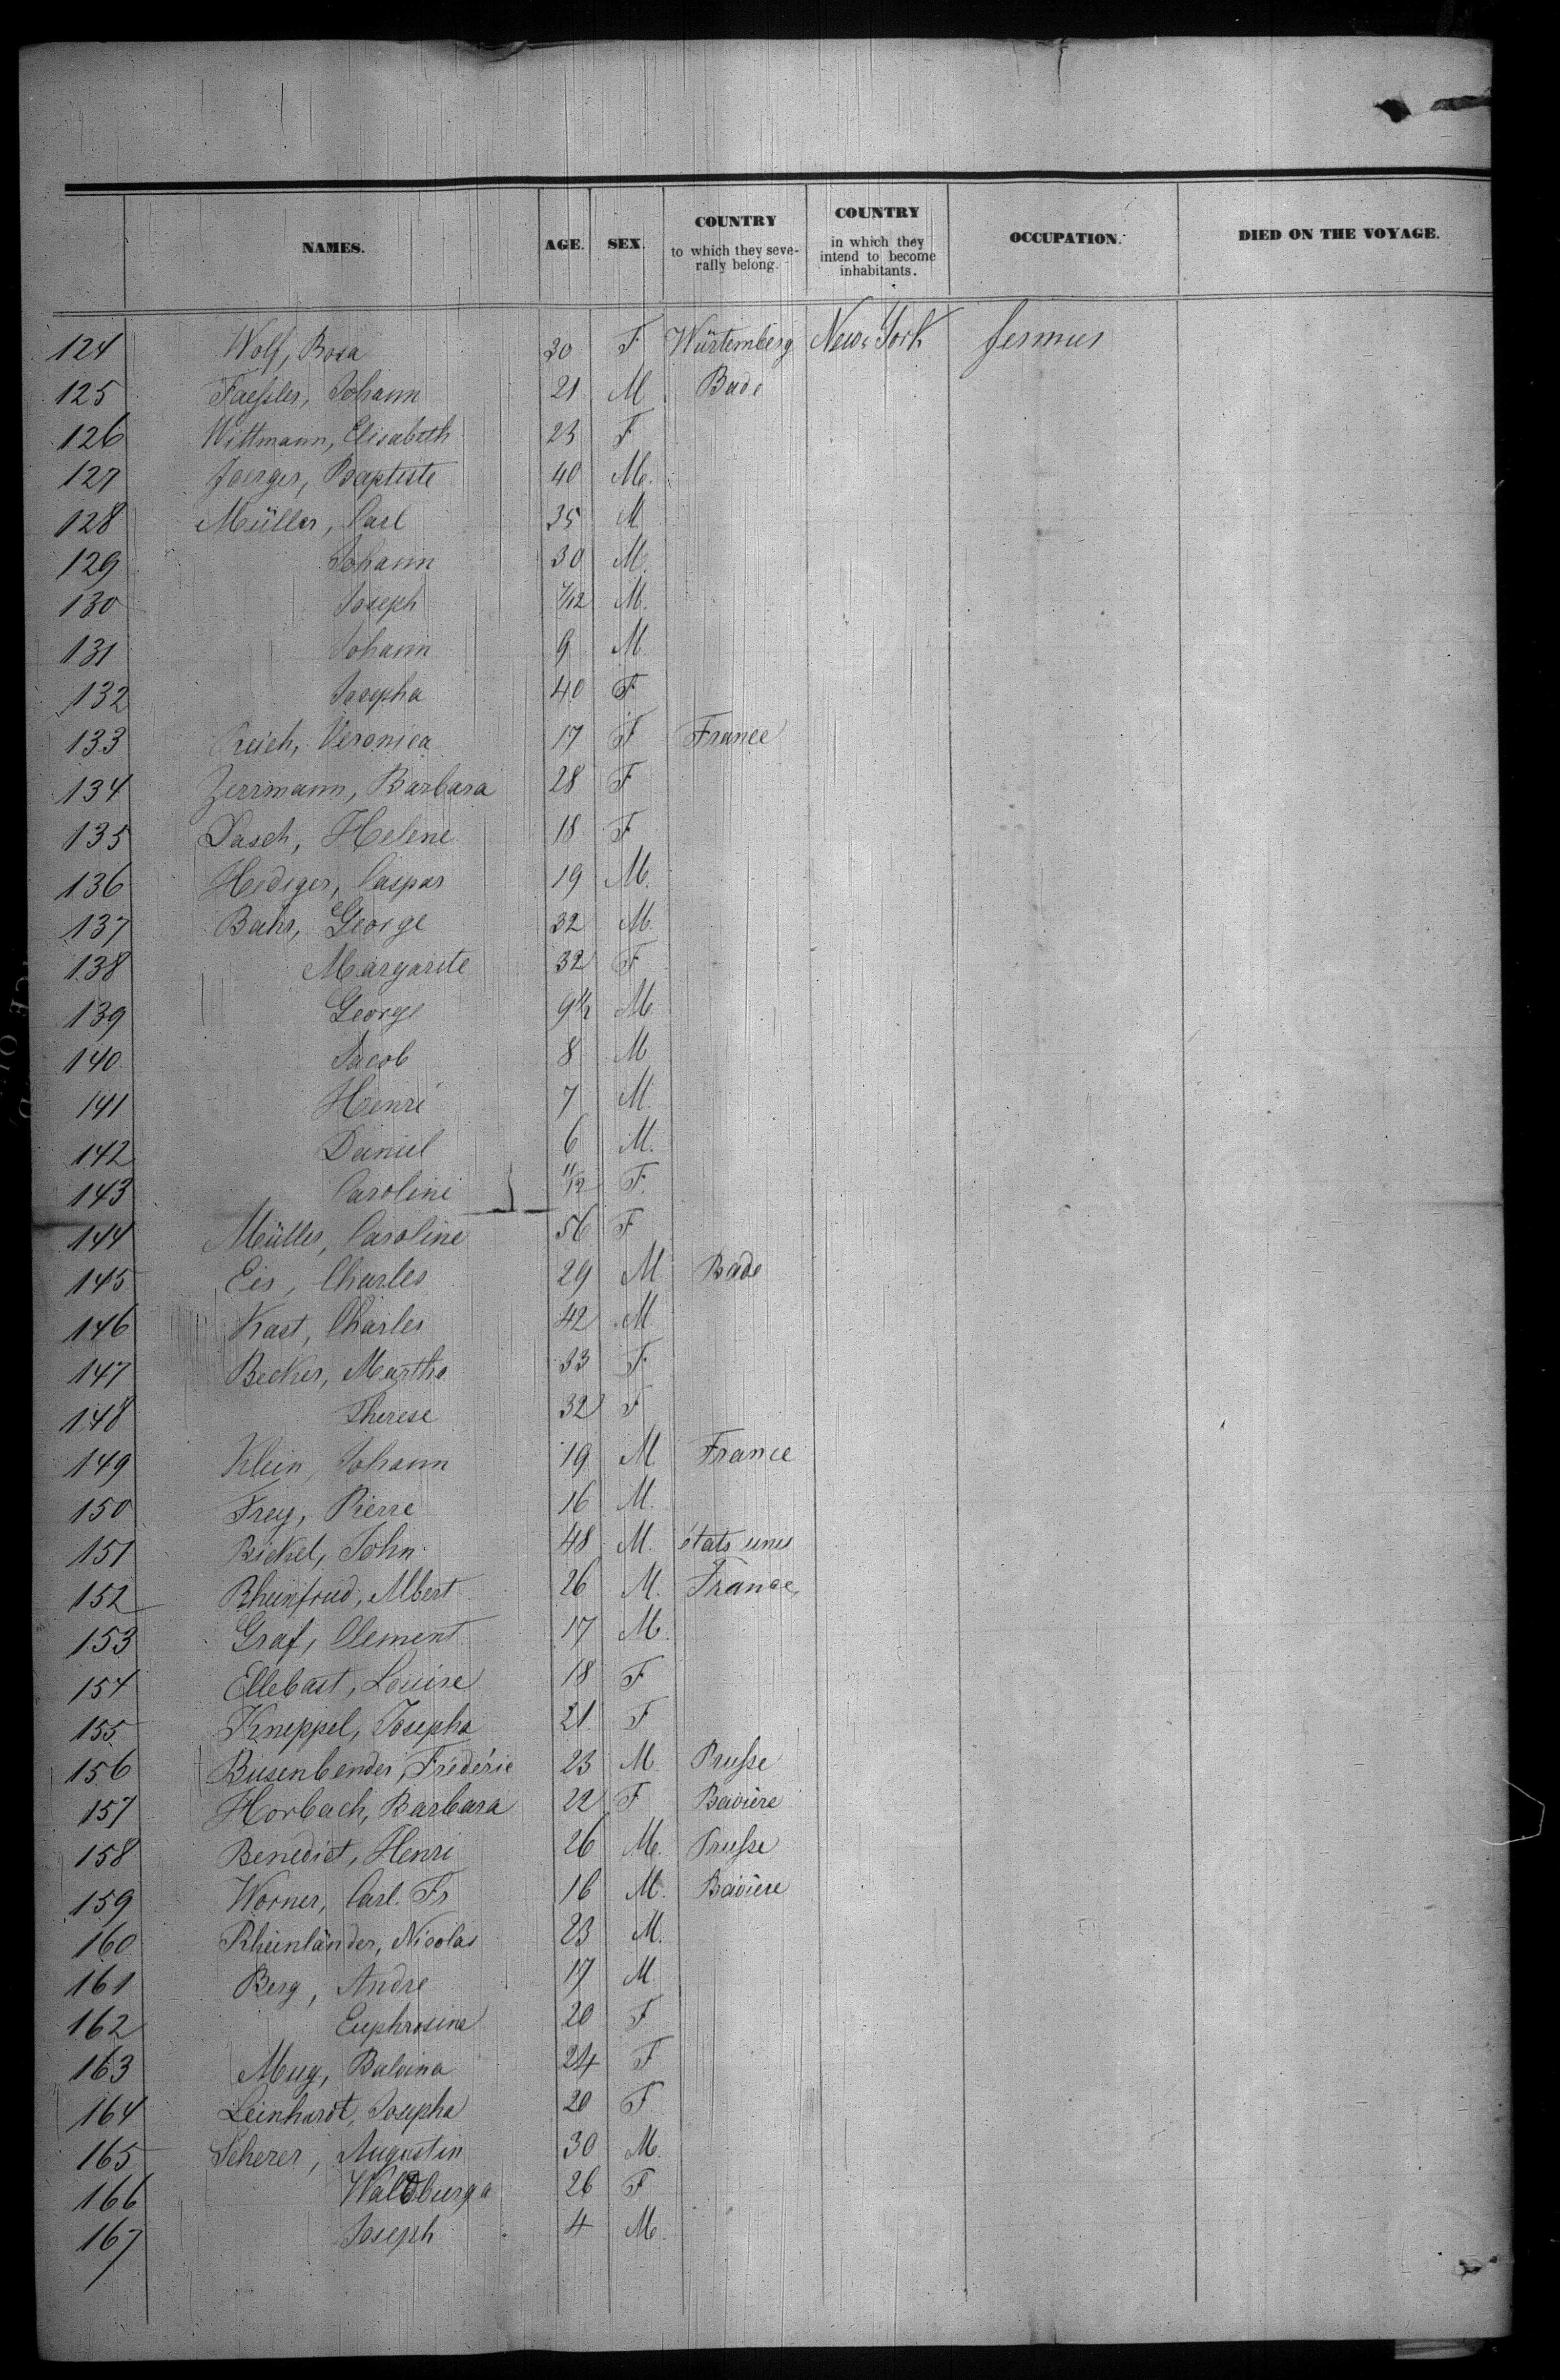 NAMES. AGE. SEX. COUNTRY to which they severally belong. COUNTRY in which they intend to become inhabitants. OCCUPATION. DIED ON THE VOYAGE.
124 Wolf, Rosa 30 F Würtemberg New York
125 Faessler, Johann 21 M Bade
126 Wittmann, Elisabeth 23 F
127 Joerger, Baptiste 40 M.
128 Müller, Carl 35 M
129 Johann 30 M.
130 Joseph M.
131 Johann 9 M.
132 Josepha 40 F
133 Reich, Veronica 17 F France
134 Zerrmann, Barbara 28 F
135 Dasch, Helene 18 F
136 Hediger, Caspar 19 M.
137 Bahr, George 32 M.
138 Margarite 32 F
139 George M.
140 Jacob 8 M
141 Henri 7 M.
142 Daniel 6 M.
143 Caroline 11/12 F.
144 Müller, Caroline 56 F
145 Eis, Charles 29 M Bade
146 Kast, Charles 42 M
147 Becker, Martha 33 F
148 Therese 32 F
149 Klein, Johann 19 M France
150 Frey, Pierre 16 M.
151 Bickel, John 48 M. états unis
152 Rheinfried, Albert 26 M. France,
153 Graf, Clement 17 M.
154 Ellebast, Louise 18 F
155 Kneppel, Josepha 21 F
156 Busenbender, Fréderic 23 M. Prusse
157 Horbach, Barbara 22 F Bavière
158 Benedict, Henri 26 M. Prusse
159 Worner, Carl. Fr 16 M. Bavière
160 Rheinländer, Nicolas 23 M.
161 Berg, Andre 17 M
162 Euphrosine 20 F
163 Mug, Balbina 24 F
164 Leinhardt, Josepha 20 F
165 Scherer, Augustin 30 M.
166 Waldburga 26 F
167 Joseph 4 M.